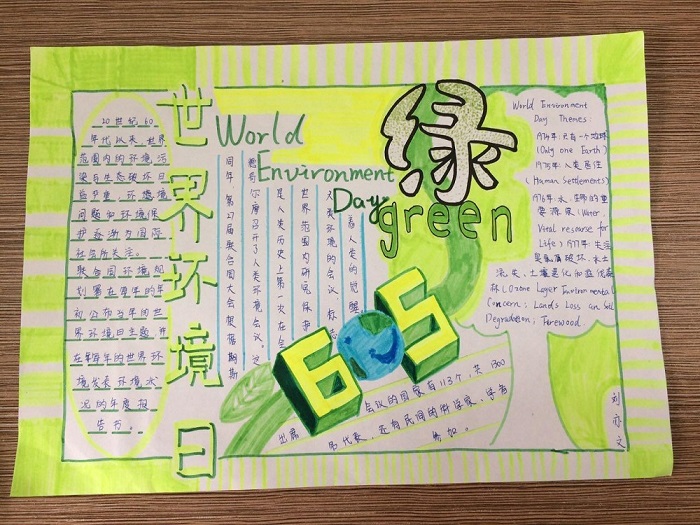 20世纪60
年代以来,世界
范围内的环境污
染与生态破坏日
益严重,环境
问题和环境保
护逐渐为国际
社会所关注。
联合国环境规
划署在每年的年
初公布当年的世
界环境日主题,并
在每年的世界环
境发表环境状
况的年度报
告书。
世界环境日
World
Environment
Day
绿
green
着人类的觉醒
人类环境的会议,标志
世界范围内研究保护
是人类历史上第一次在全
尔摩召开了人类环境会议。这
同年,第27届联合国大会根据斯
605
出席会议的国家有113个,共1300
名代表,还有民间的科学家、学者
参加。
World Environment
Day Themes:
1974年 只有一个地球
(Only one Earth)
1975年 人类居住
(Human Settlements)
1976年 水,生命的重
要源泉 (Water,
Vital resourse for
Life) 1977年
臭氧层破坏,水土
流失,土壤退化和
林 (Ozone Layer Environmental
Concern; Lands Loss
Firewood
刘亦文